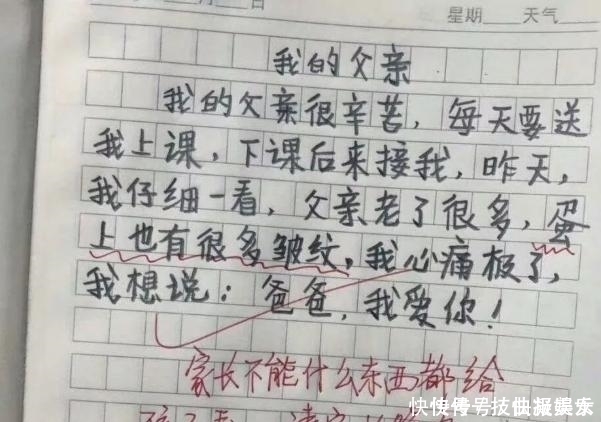 星期 天气
我的父亲
我的父亲很辛苦，每天要送
我上课，下课后来接我，昨天，
我仔细一看，父亲老了很多，蛋
上也有很多皱纹，我心痛极了，
我想说：爸爸，我爱你！
家长不能什么东西都给